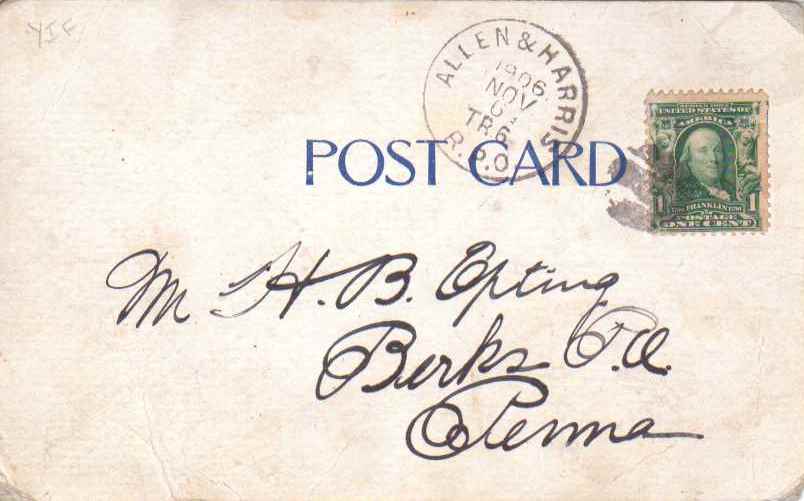 YIF
ALLEN & HARRIS.
1906
NOV
TR.6
R.P.O.
UNITED STATES OF
AMERICA
POST CARD
1 FRANKLIN 1
POSTAGE
ONE CENT
Mr H. B. Epting
Berks P.O.
Penna